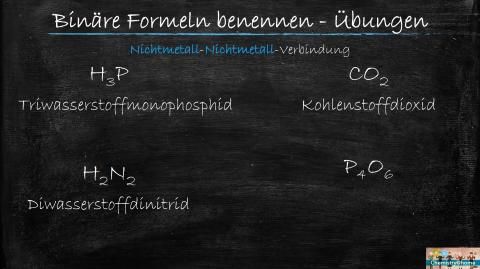 Binäre Formeln benennen - Übungen
Nichtmetall-Nichtmetall-Verbindung
H₃P CO₂
Triwasserstoffmonophosphid Kohlenstoffdioxid
H₂N₂ P₄O₆
Diwasserstoffdinitrid
Chemistry@home